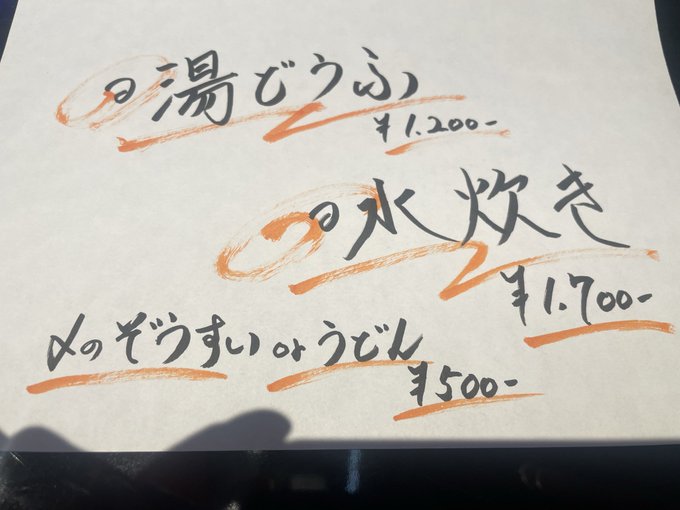 湯どうふ
¥1.200-
水炊き
¥1.700-
〆のぞうすい or うどん
¥500-